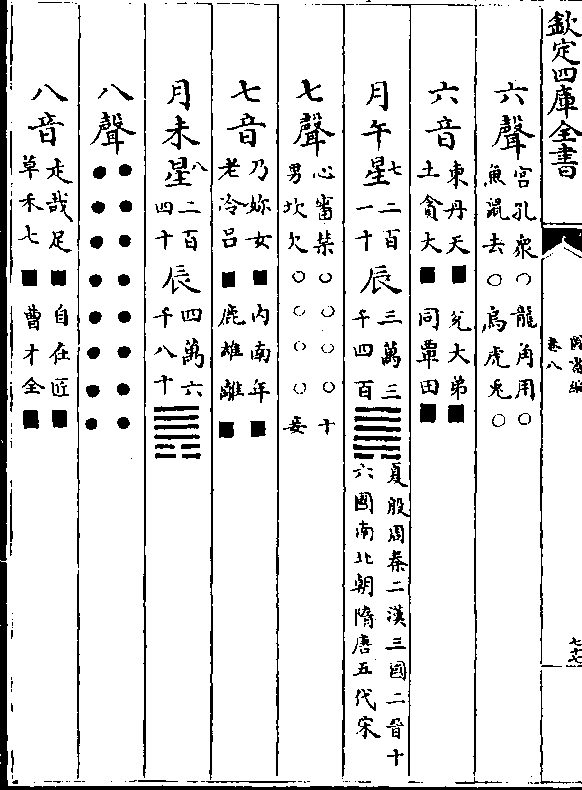 欽定四庫全書
圖書編
卷八
六聲
宮孔衆○龍角用○
魚鼠去○烏虎兔○
六音
東丹天■兌大弟■
土貪大■同覃田■
月午星七
二百
一十
辰
三萬三
千四百
夏殷周秦二漢三國二晉十
六國南北朝隋唐五代宋
七聲
心審禁○○○○十
男坎欠○○○○妾
七音
乃妳女■內南年■
老冷呂■鹿雄離■
月未星八
二百
四十
辰
四萬六
千八十
八聲
●●●●●●●●
●●●●●●●●
八音
走哉足■自在匠■
草禾七■曹才全■